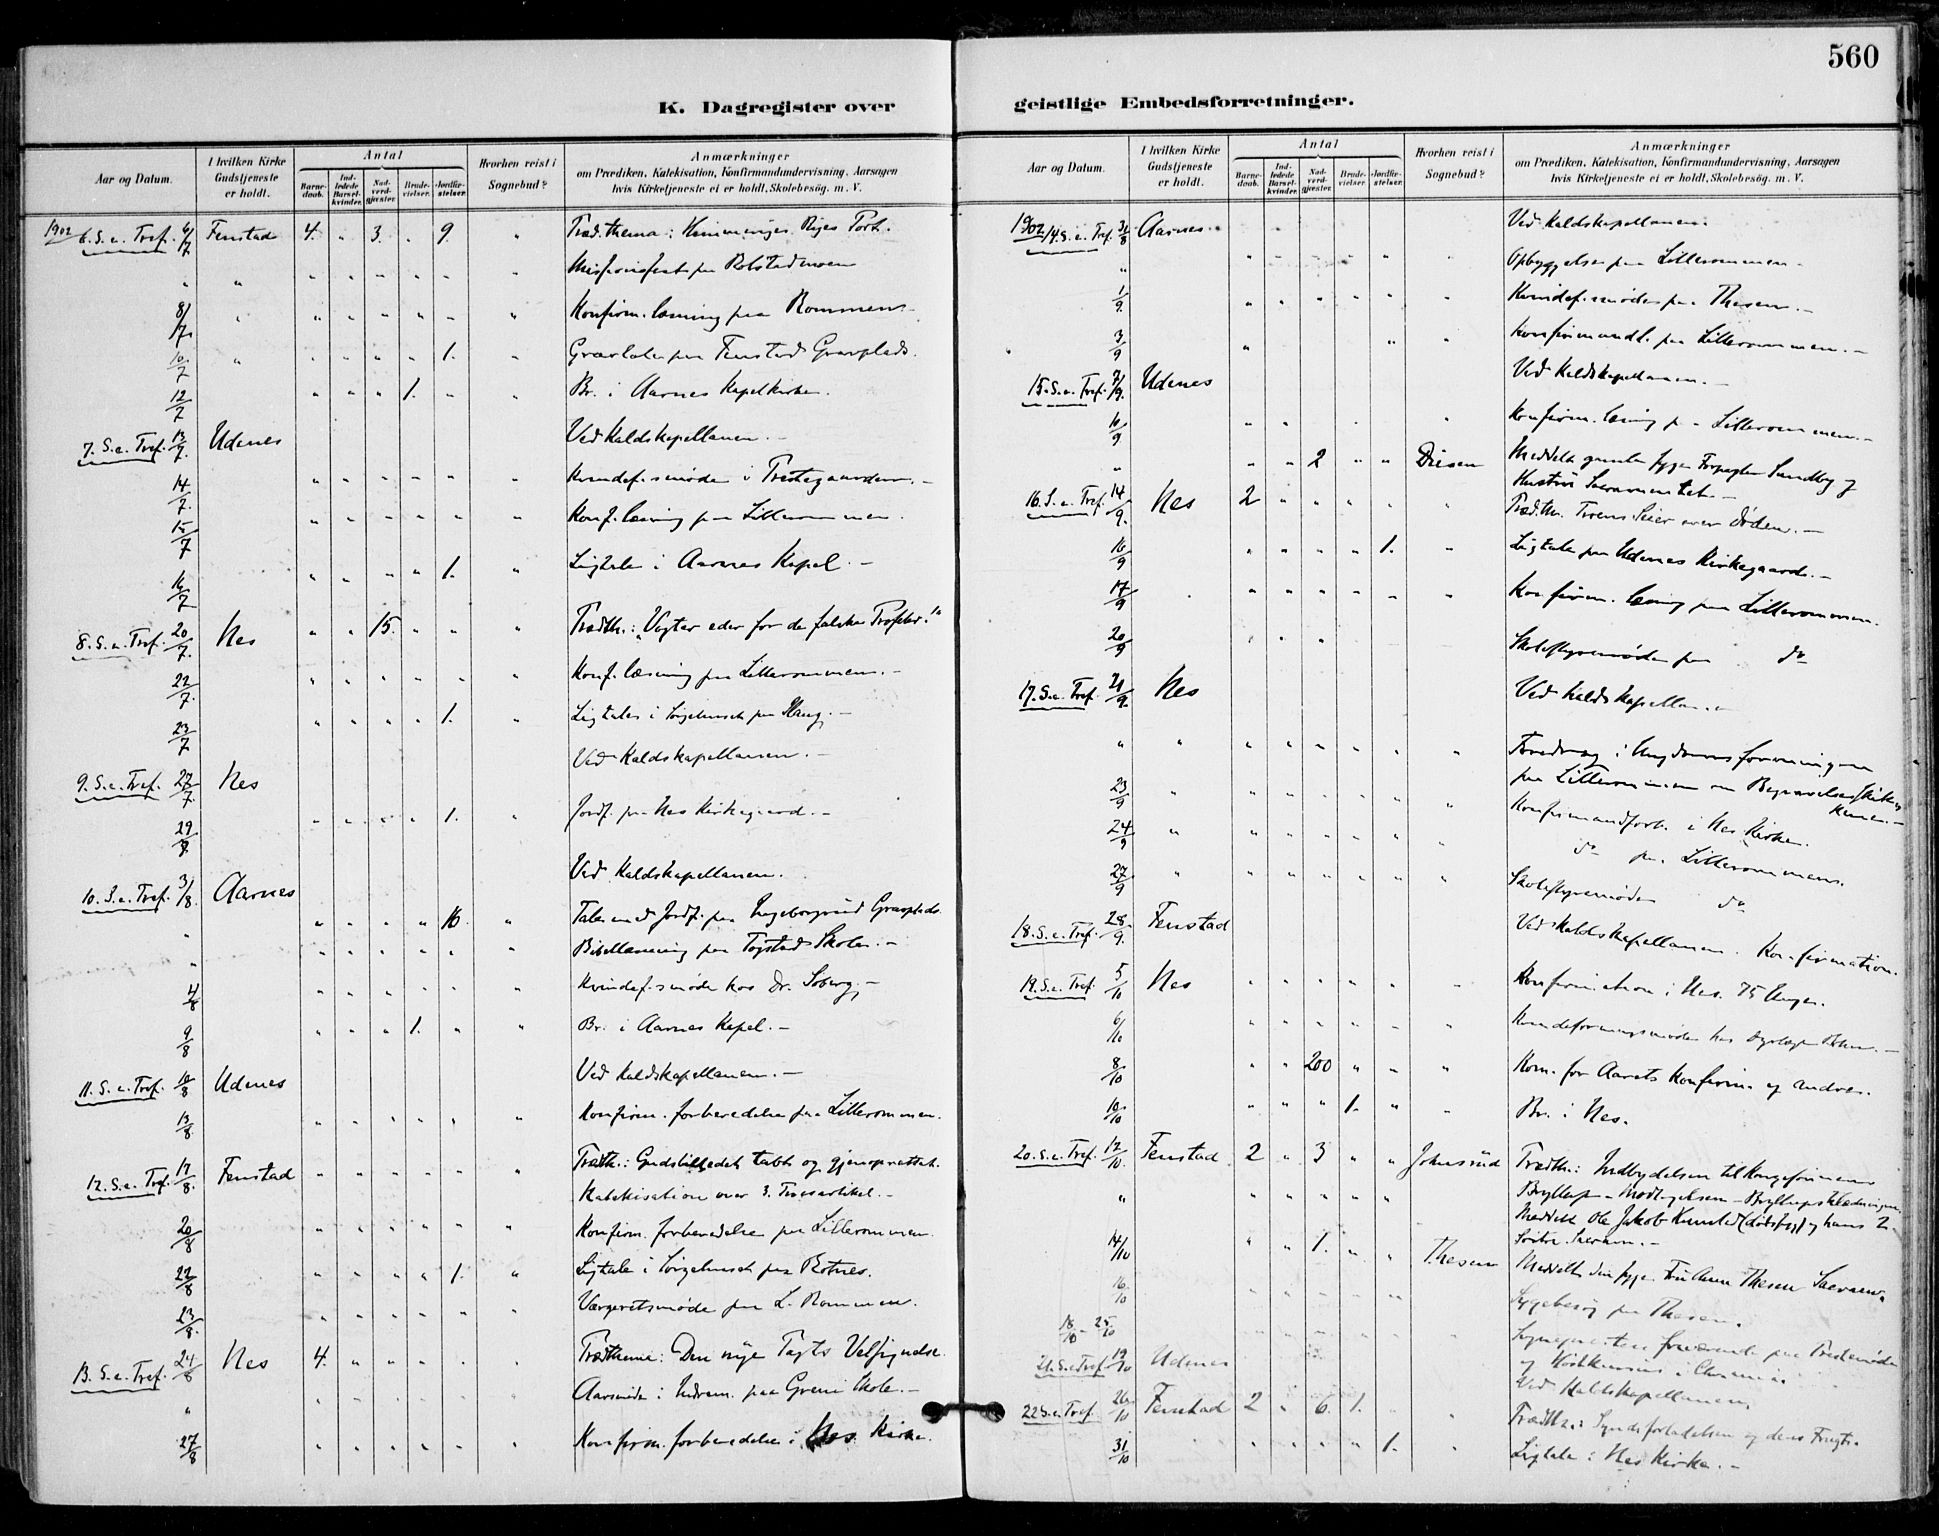 560
K. Dagregister over
Aar og Datum.
I hvilken Kirke Gudstjeneste er holdt.
Antal
Barnedaab.
Indledede Barselkvinder.
Nadverdgjæster.
Brudevielser.
Jordfæstelser.
Hvorhen reist i Sognebud?
Anmærkninger
om Prædiken, Katekisation, Konfirmandundervisning, Aarsagen
hvis Kirketjeneste ei er holdt, Skolebesøg. m. V.
1902 6. S. e. Tref. 6/7 Fenstad 4. " 3. " 9. " Præd.thema: Himmeriges Riges Port.
" " Missionsfest paa Rolstadmoen
8/7 " Konfirm. læsning paa Rommen
10/7 " 1. Gravtale paa Fenstad Gravplads.
12/7 1. Br. i Aarnes Kapelkirke.
7. S. e. Tref. 13/7. Udenes Ved Kaldskapellanen. –
14/7. Kvindef.smøde i Prestegaarden. –
15/7 Konf. læsning paa Lillerommen.
16/7 1. Ligtale i Aarnes Kapel. –
8. S. e. Tref. 20/7. Nes " " 15. " " " Prædth.: "Vogter eder for de falske Profeter!"
22/7. Konf. læsning paa Lillerommen. –
23/7 1. Ligtale i Sørgehuset paa Haug. –
9. S. e. Tref. 27/7. Nes Ved Kaldskapellanen. –
29/7. 1. Jordf. paa Nes Kirkegaard. –
10. S. e. Tref. 3/8. Aarnes Ved Kaldskapellanen.
" 16. Tale ved Jordf. paa Ingeborgrud Gravplads.
" Bibellæsning paa Fogstad Skole. –
4/8 Kvindef.smøde hos Dr. Soberg. –
9/8 1. Br. i Aarnes Kapel. –
11. S. e. Tref. 10/8 Udenes Ved Kaldskapellanen. –
13/8. Konfirm. forberedelse paa Lillerommen.
12. S. e. Tref. 17/8. Fenstad Prædth.: Gudsbilledet tabt og gjenoprettet.
Katekisation over 3. Trosartikel. –
20/8 Konfirm. forberedelse paa Lillerommen.
22/8 1. Ligtale i Sørgehuset paa Botnes.
23/8. Værgeretsmøde paa L. Rommen.
13. S. e. Tref. 24/8 Nes 4. Prædthema: Den nye Pagts Velsignelse.
" Aarsmøde i Indrem. paa Greni Skole. –
27/8 Konfirm. forberedelse i Nes Kirke.
geistlige Embedsforretninger.
Aar og Datum.
I hvilken Kirke Gudstjeneste er holdt.
Antal
Barnedaab.
Indledede Barselkvinder.
Nadverdgjæster.
Brudevielser.
Jordfæstelser.
Hvorhen reist i Sognebud?
Anmærkninger
om Prædiken, Katekisation, Konfirmandundervisning, Aarsagen
hvis Kirketjeneste ei er holdt, Skolebesøg. m. V.
1902 14. S. e. Tref. 31/8 Aarnes. Ved Kaldskapellanen.
" Opbyggelse paa Lillerommen. –
1/9 Kvindef.smøde paa Thesen. –
3/9 Konfirmandl. paa Lillerommen. –
15. S. e. Tref. 7/9. Udenes Ved Kaldskapellanen. –
10/9 Konfirm. læsning paa Lillerommen. –
" 2 Disen Meddelt gamle syge Forpagter Sundby og
Hustru Sacramentet. –
16. S. e. Tref. 14/9. Nes 2 Præd.th. Troens Seier over Døden. –
16/9 1. Ligtale paa Udenes Kirkegaard. –
17/9 Konfirm. læsning paa Lillerommen.
20/9 Skolestyremøde paa do
17. S. e. Tref. 21/9. Nes Ved Kaldskapellan. –
" " Foredrag i Ungdomsforeningen
paa Lillerommen om Begravelsesskikkene. –
23/9 " Konfirmandforb. i Nes Kirke.
24/9 " do paa Lillerommen.
27/9 " Skolestyremøde do
18. S. e. Tref. 28/9. Fenstad Ved Kaldskapellanen. Konfirmation.
19. S. e. Tref. 5/10 Nes Konfirmation i Nes. 75 Unge.
6/10 Kvindeforeningsmøde hos
8/10 200 Kom. for Aarets Konfirm. og andre.
10/10 1. Br. i Nes.
20. S. e. Tref. 12/10. Fenstad 2 " 3 " " Johnsrud Prædth.: Indbydelsen til Kongesønnens
" Bryllup – Modtagelsen – Bryllupsklædningen.
Meddelt Ole Jakob og hans 2
Søstre Sacram. –
14/10 1. Thesen Meddelt den syge Fru Anna Thesen Sacram.
16/10 Sygebesøg paa Thesen.
18/10 – 25/10 Sognepresten fraværende paa Prestemøde
og i Chr.ania
21. S. e. Tref. 19/10 Udenes Ved Kaldskapellanen.
22 S. e. Tref. 26/10 Fenstad 2 " 6. 1. Prædth.: Syndsforladelsen og dens Frugt.
31/10 1. Ligtale i Nes Kirke. –